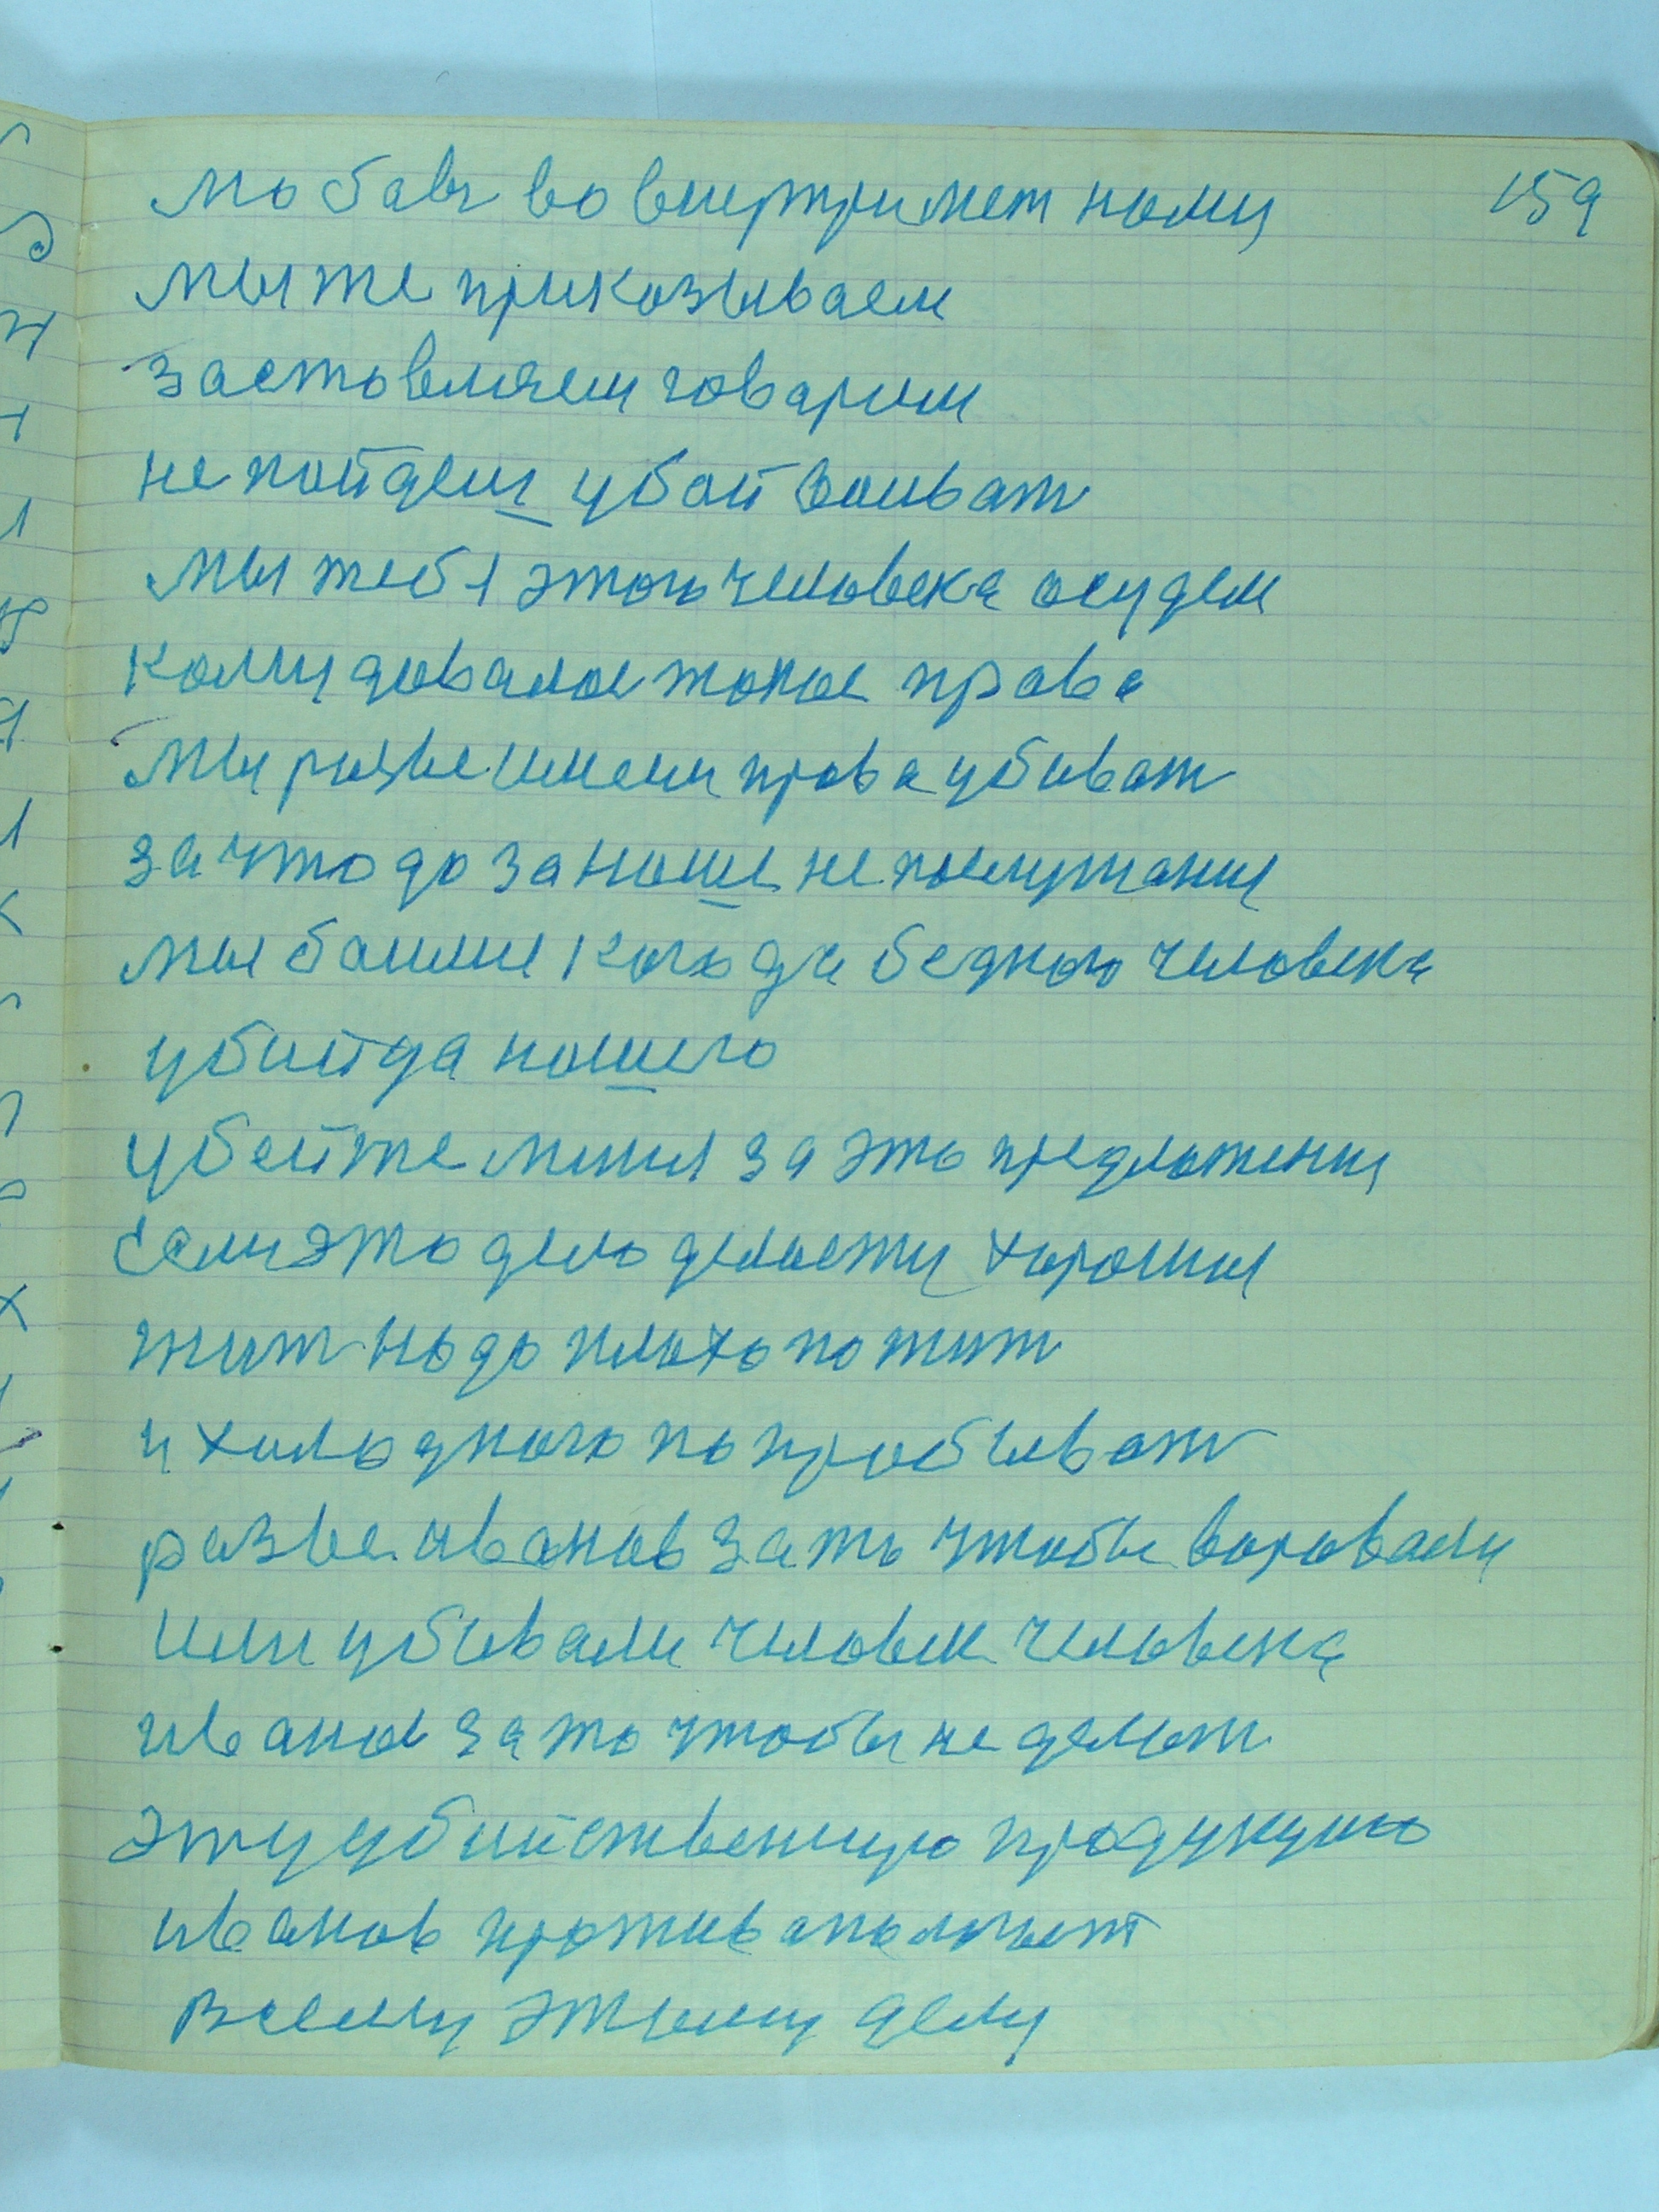 159
мы же приказываем
заставляем говарим
не пойдеш убой воиват
мы тебя этого человека осудем
кому довалос токое права
мы разве имеем права убиват
за что до за наше не послушания
мы боимся кого да бедного человека
убийда нашего
убейте миня за это предложения
Если это дело делаети хорошия
жит надо плохо пожит
и холодного попробиват
разве иванов зато чтобы воровали
или убивали человек человека
иванов зато чтобы не делат
эту убийственную продукцию
иванов против
всему этому делу